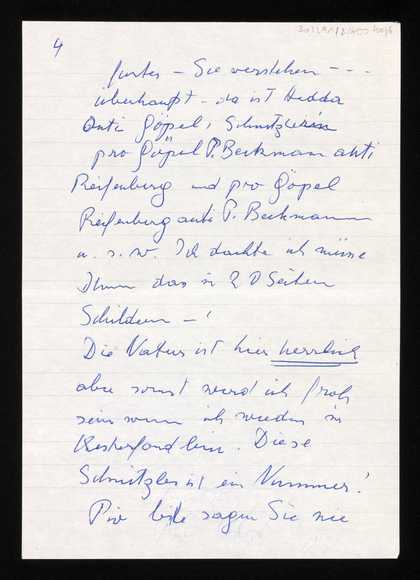 4
– Sie verstehen – – –
überhaupt – da ist Hedda
Anti Göpel, Schnitzlerin
pro Göpel P. Beckman anti
Reifenberg und pro Göpel
Reifenberg anti P. Beckmann
u. s. w. Ich dachte ich müsse
Ihnen das in 20 Seiten
Schildern – !
Die Natur ist hier herrlich
aber sonst werd ich froh
sein wenn ich wieder in
bin. Diese
Schnitzler ist ein Nummer!
bitte sagen Sie nie